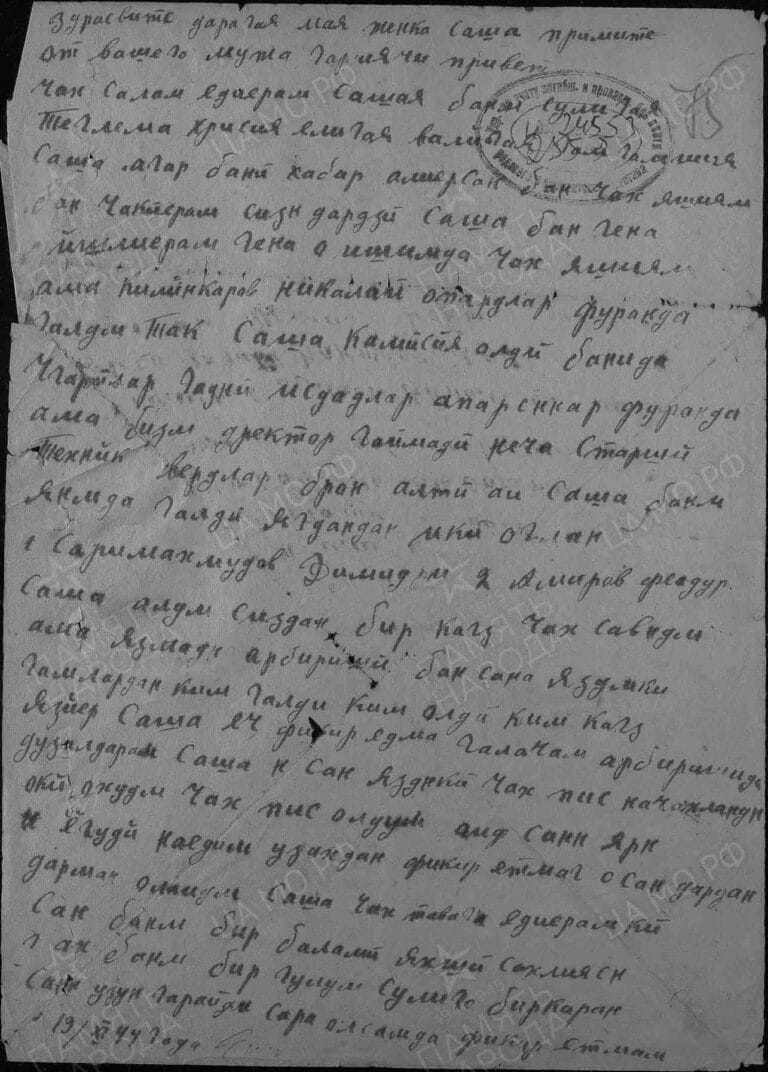 здрасвите дарагая мая женка Саша примите
от вашего мужа гариячи привет
чах Салам едиерам Сашая баним Сулиго
Теглема хрисия елигая
Саша агар бани хабар алиерсан бан чах яшиям
бан чакиерам сизн дардзи Саша бан гена
йшлиерам гена о ишимда чах яшиям
ама Килинкаров Николай опардлар фуранда
галдм так Саша Камисия олди банида
ягдилар гадни исдадлар апарсинкар фуранда
ама бизм дректор гоймади неча Старший
Техник вердлар брон алти аи Саша баним
янмда галди ягдандан ики оглан
1 Саримахмудов Димидри 2 Амиров феодур.
Саша алдм сиздан бир кагз чах савндм
ама язмадн арбиришй бан сана яздмки
гамлардан ким галди ким олди ким кагз
язиер Саша еч фикир едма галачам арбиришйда
дузалдарам Саша н сан язднки чах пис качахландн
оки охудм чах пис олдум аиф санн ярн
н ёгуди наедим узахдан фикир етмаг о сан дардан
дарман олмидм Саша чах тавага едиерамки
Сан баним бир балами яхший сахлиясн
гах баним бир гулум Сулиго биркаран
Сан узун гарайдн Сара олсамда фикир етмам
19/XI 44 года